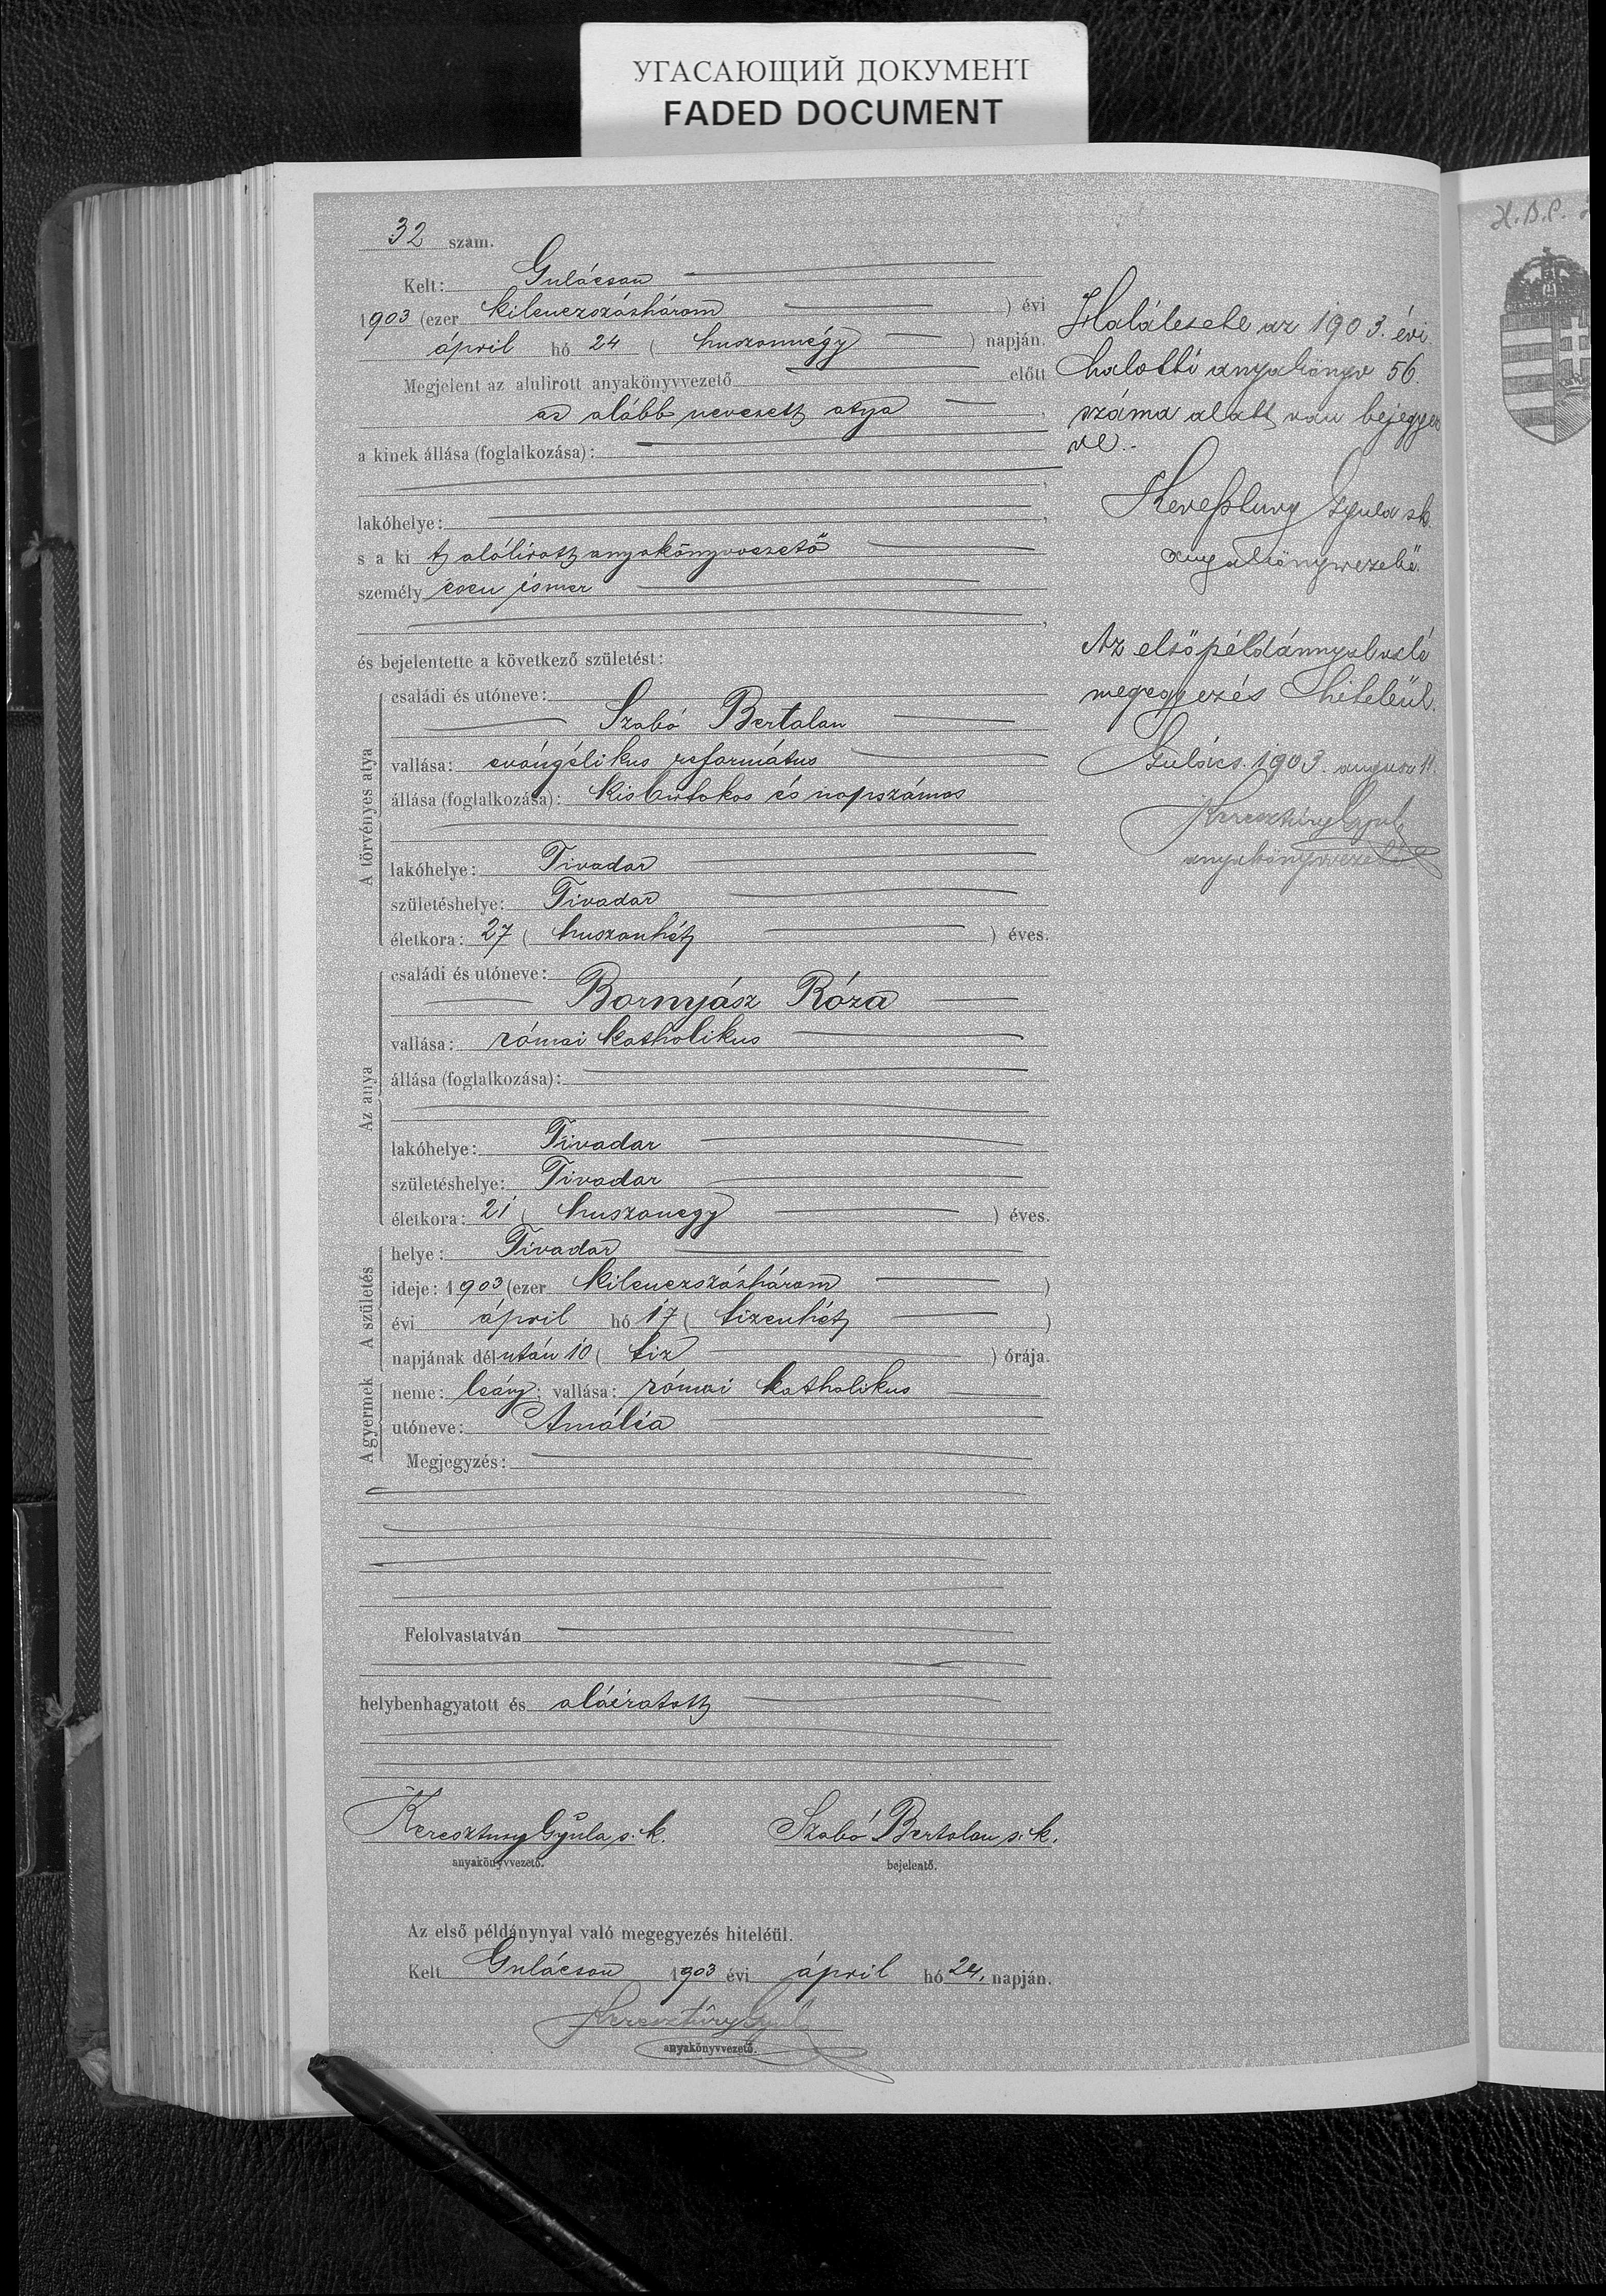 УГАСАЮЩИЙ ДОКУМЕНТ
FADED DOCUMENT
32 szám.
Kelt: Gulácson
1903 (ezer kilenczszázhárom ) évi
ápril hó 24 ( huszonnégy ) napján.
Megjelent az alulirott anyakönyvvezető előtt
az alább nevezett atya
a kinek állása (foglalkozása):
lakóhelye:
s a ki t, alólirott anyakönyvvezető
személyesen ismer
és bejelentette a következő születést:
A törvényes atya
családi és utóneve:
Szabó Bertalan
vallása: evángélikus református
állása (foglalkozása): kisbirtokos és napszámos
lakóhelye: Tivadar
születéshelye: Tivadar
életkora: 27 ( huszonhét ) éves.
Az anya
családi és utóneve:
Bornyász Róza
vallása: római katholikus
állása (foglalkozása):
lakóhelye: Tivadar
születéshelye: Tivadar
életkora: 21 ( huszonegy ) éves.
A születés
helye: Tivadar
ideje: 1903 (ezer kilenczszázhárom )
évi ápril hó 17 ( tizenhét )
napjának délután 10 ( tiz ) órája.
A gyermek
neme: leány; vallása: római katholikus
utóneve: Amália
Megjegyzés:
Felolvastatván
helybenhagyatott és aláiratott
Keresztury Gyula s. k.
anyakönyvvezető.
Szabó Bertalan s. k.
bejelentő.
Az első példánynyal való megegyezés hiteléül.
Kelt Gulácson 1903 évi ápril hó 24. napján.
Keresztury Gyula
anyakönyvvezető.
Halálesete az 1903. évi
halotti anyakönyv 56.
száma alatt van bejegyez
ve.
Keresztury Gyula sk.
anyakönyvvezető.
Az első példánnyal való
megegyezés hiteléül.
Gulács. 1903. augus 11.
Keresztury Gyula
anyakönyvvezető